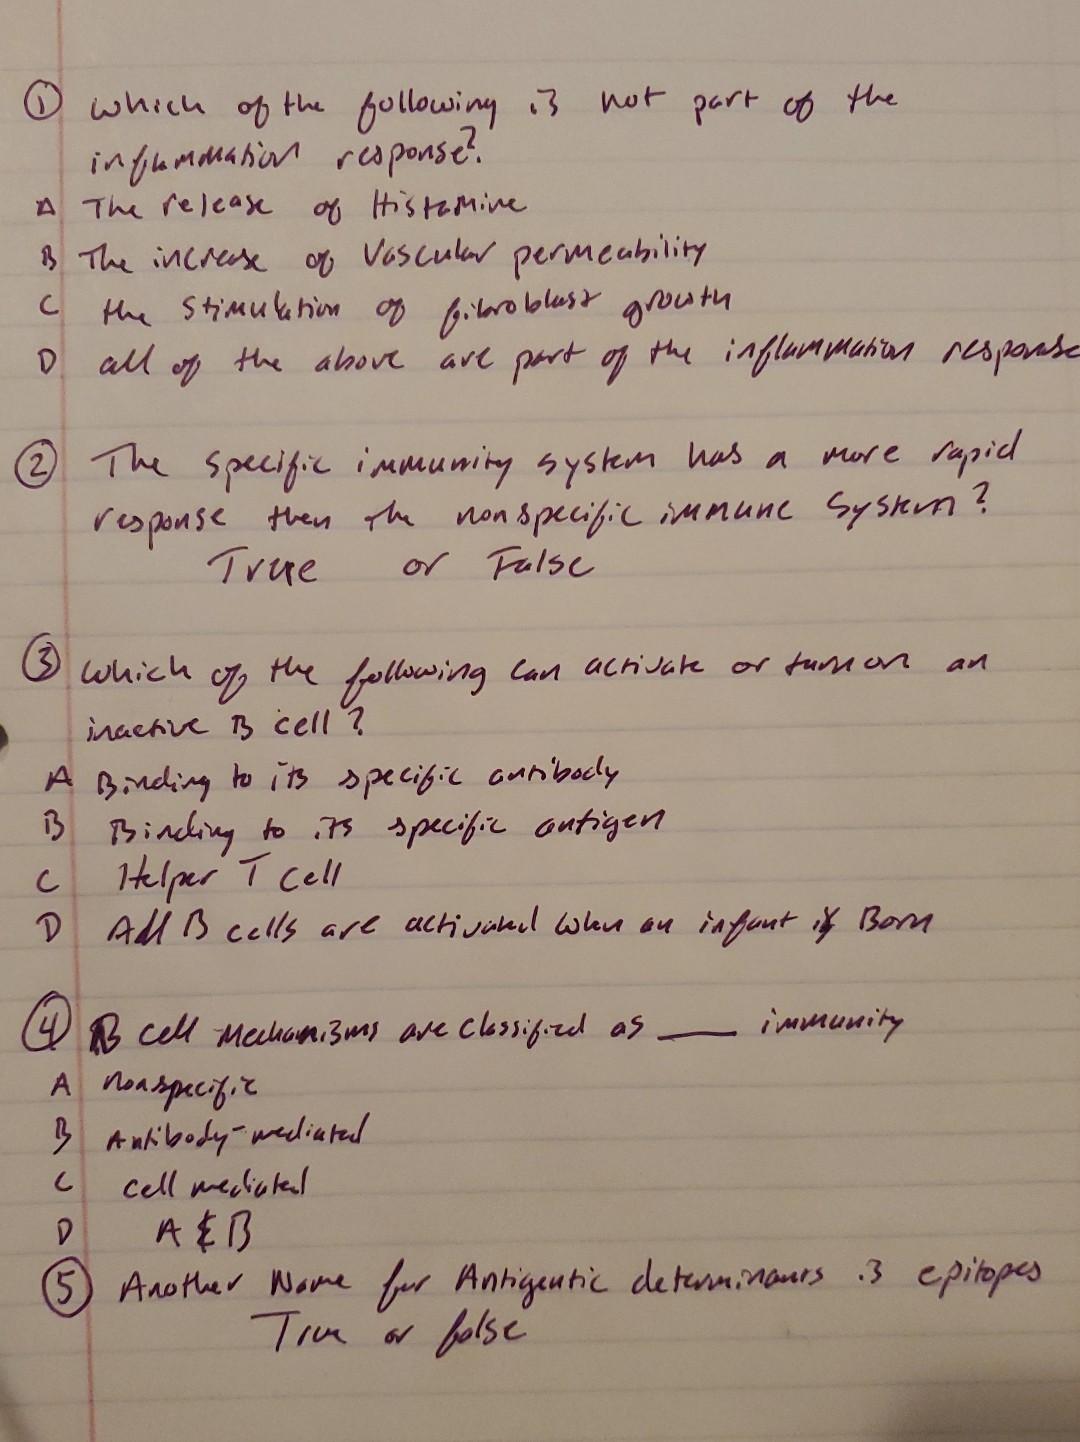 ① Which of the following is not part of the
inflammation response?
A The release of Histamine
B The increase of Vascular permeability
C the stimulation of fibroblast growth
D all of the above are part of the inflammation response
② The specific immunity system has a more rapid
response then the nonspecific immune system?
True or False
③ Which of the following can activate or turn on an
inactive B cell?
A Binding to its specific antibody
B Binding to its specific antigen
C Helper T cell
D All B cells are activated when an infant is Born
④ B cell mechanisms are classified as ____ immunity
A nonspecific
B Antibody-mediated
C cell mediated
D A & B
⑤ Another Name for Antigentic determinants is epitopes
True or false